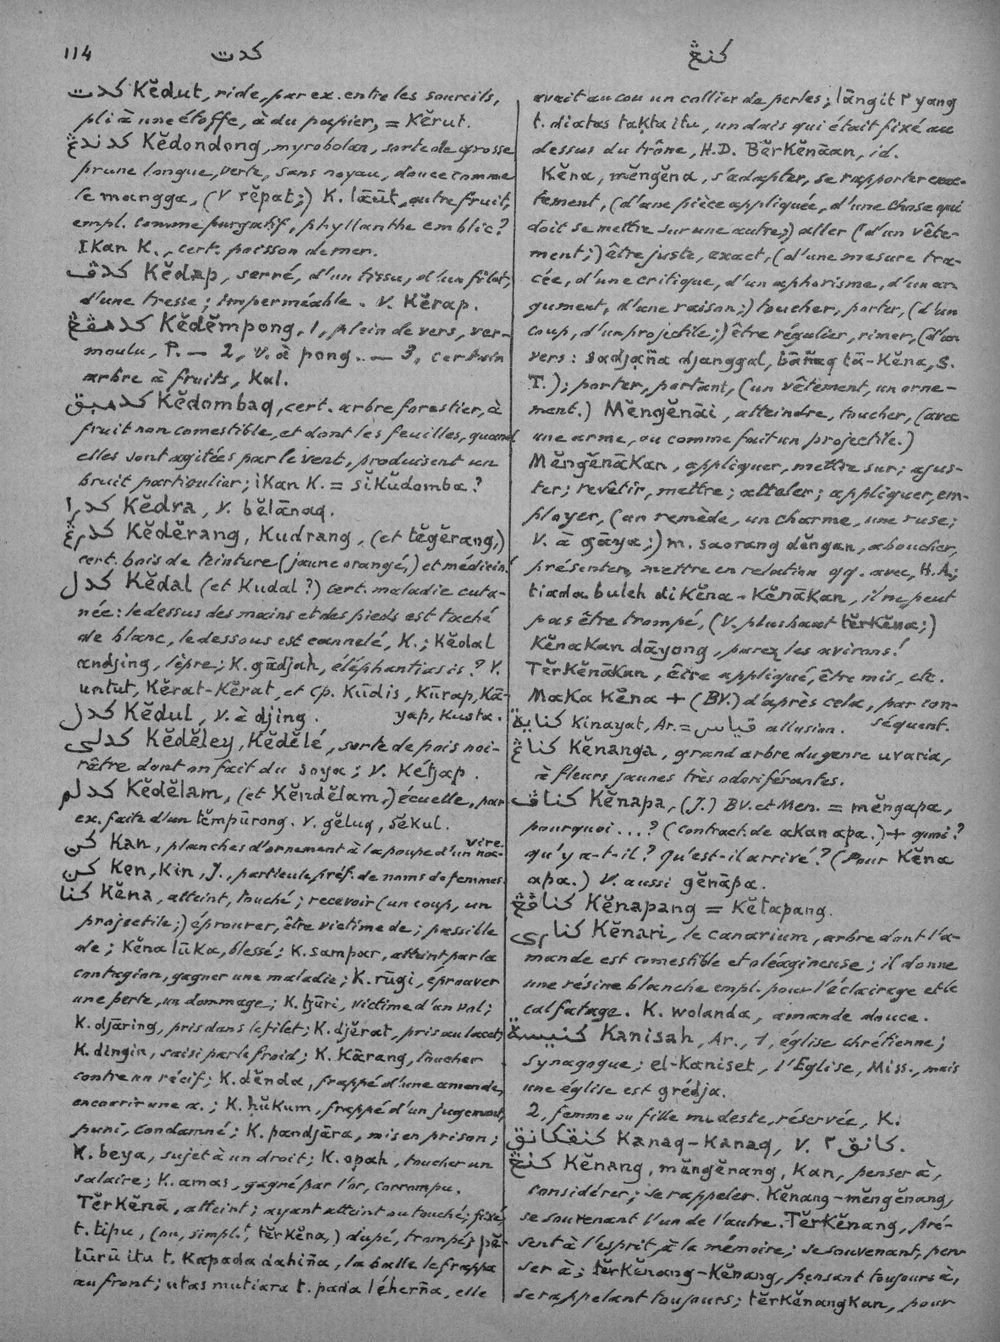 114
كدت
كنڠ
كدت Kĕdut, ride, par ex. entre les sourcils,
pli à une étoffe, à du papier, = Kĕrut.
كدندڠ Kĕdondong, myrobolan, sorte de grosse
prune longue, verte, sans noyau, douce comme
le mangga, (V rĕpat;) K. lāūt, autre fruit,
empl. comme purgatif, phyllanthe emblic?
Ikan K., cert. poisson de mer.
كدڤ Kĕdap, serré, d'un tissu, d'un filet,
d'une tresse; imperméable. V. Kĕrap.
كدمڤڠ Kĕdĕmpong, 1, plein de vers, ver-
moulu, P. — 2, V. à pong. — 3, certain
arbre à fruits, Kal.
كدمبق Kĕdombaq, cert. arbre forestier, à
fruit non comestible, et dont les feuilles, quand
elles sont agitées par le vent, produisent un
bruit particulier; ikan K. = sĭkŭdomba?
كدرا Kĕdra, V. bĕlānaq.
كدرڠ Kĕdĕrang, Kudrang, (et tĕgĕrang,)
cert. bois de teinture (jaune orangé,) et médicin.
كدل Kĕdal (et Kudal?) cert. maladie cuta-
née: le dessus des mains et des pieds est taché
de blanc, le dessous est cannelé, K.; Kĕdal
andjing, lèpre; K. gādjah, éléphantiasis? V.
untut, Kĕrat-Kĕrat, et cp. Kūdis, Kūrap, Kā-
yap, Kusta.
كدل Kĕdul, V. à djing.
كدلي Kĕdĕley, Kĕdĕlé, sorte de pois noi-
râtre dont on fait du soya; V. Kétjap.
كدلم Kĕdĕlam, (et Kĕndĕlam,) écuelle, par
ex. faite d'un tĕmpūrong. V. gĕluq, sĕkul.
كن Kan, planches d'ornement à la poupe d'un na-
vire.
كن Ken, Kin, J., particule préf. de noms de femmes.
كنا Kĕna, atteint, touché; recevoir (un coup, un
projectile;) éprouver, être victime de; passible
de; Kĕna lūka, blessé; K. sampar, atteint par la
contagion, gagner une maladie; K. rūgi, éprouver
une perte, un dommage; K. tjūri, victime d'un vol;
K. djāring, pris dans le filet; K. djĕrat, pris au lacet;
K. dingin, saisi par le froid; K. Kārang, toucher
contre un récif; K. dĕnda, frappé d'une amende,
encourir une a.; K. hŭkum, frappé d'un jugement,
puni, condamné; K. pandjāra, mis en prison;
K. beya, sujet à un droit; K. opah, toucher un
salaire; K. amas, gagné par l'or, corrompu.
Tĕrkĕnā, atteint; ayant atteint ou touché; fixé;
t. tipu, (ou, simplt, tĕrkĕna,) dupé, trompé; pĕ-
lūrū itu t. Kapada dahiña, la balle le frappa
au front; utas mutiara t. pada léherña, elle
avait au cou un collier de perles; lāngit ٢ yang
t. diatas takta itu, un dais qui était fixé au
dessus du trône, H.D. Bĕrkĕnāan, id.
Kĕna, mĕngĕna, s'adapter, se rapporter exac-
tement, (d'une pièce appliquée, d'une chose qui
doit se mettre sur une autre;) aller (d'un vête-
ment;) être juste, exact, (d'une mesure tra-
cée, d'une critique, d'un aphorisme, d'un ar-
gument, d'une raison;) toucher, porter, (d'un
coup, d'un projectile;) être régulier, rimer, (d'un
vers: sadjaña djanggal, bāñaq tā-Kĕna, S.
T.); porter, portant, (un vêtement, un orne-
ment.) Mĕngĕnāi, atteindre, toucher, (avec
une arme, ou comme fait un projectile.)
Mĕngĕnākan, appliquer, mettre sur; ajus-
ter; revêtir, mettre; atteler; appliquer, em-
ployer, (un remède, un charme, une ruse;
V. à gāya;) m. saorang dĕngan, aboucher,
présenter, mettre en relation qq. avec, H.A.;
tiada buleh di Kĕna-Kĕnākan, il ne peut
pas être trompé, (V. plus haut tĕrkĕna;)
Kĕnakan dāyong, parez les avirons!
Tĕrkĕnākan, être appliqué, être mis, etc.
Maka Kĕna + (BV.) d'après cela, par con-
séquent.
كناية Kinayat, Ar. = قياس allusion.
كناڠ Kĕnanga, grand arbre du genre uvaria,
à fleurs jaunes très odoriférantes.
كناڤ Kĕnapa, (J.) BV. et Men. = mĕngapa,
pourquoi...? (contract. de akan apa.) + quoi?
qu'y a-t-il? Qu'est-il arrivé? (Pour Kĕna
apa.) V. aussi gĕnāpa.
كناڤڠ Kĕnapang = Kĕtapang.
كناري Kĕnari, le canarium, arbre dont l'a-
mande est comestible et oléagineuse; il donne
une résine blanche empl. pour l'éclairage et le
calfatage. K. wolanda, amande douce.
كنيسة Kanisah, Ar., 1, église chrétienne;
synagogue; el-Kaniset, l'Eglise, Miss., mais
une église est grédja.
2, femme ou fille modeste, réservée, K.
كنقكانق Kanaq-Kanaq, V. كانق ٢.
كنڠ Kĕnang, mĕngĕnang, Kan, penser à,
considérer; se rappeler. Kĕnang-mĕngĕnang,
se souvenant l'un de l'autre. Tĕrkĕnang, pré-
sent à l'esprit, à la mémoire; se souvenant, pen-
ser à; tĕrkĕnang-Kĕnang, pensant toujours à,
se rappelant toujours; tĕrkĕnangkan, pour